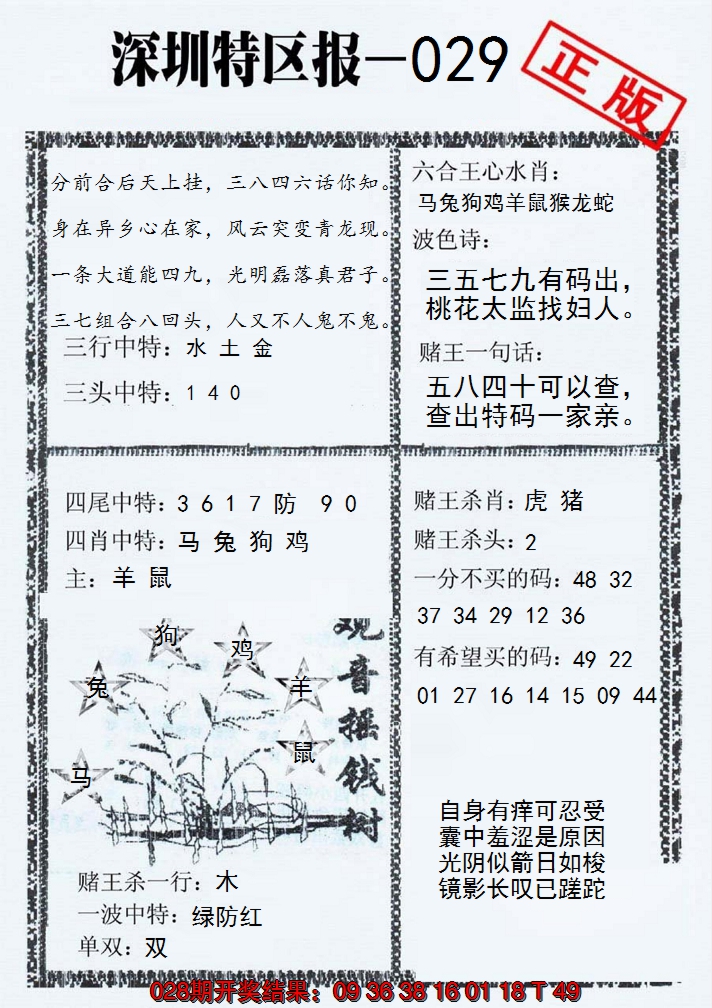 深圳特区报—029
正版
分前合后天上挂，三八四六话你知。
身在异乡心在家，风云突变青龙现。
一条大道能四九，光明磊落真君子。
三七组合八回头，人又不人鬼不鬼。
三行中特：水 土 金
三头中特：1 4 0
六合王心水肖：
马兔狗鸡羊鼠猴龙蛇
波色诗：
三五七九有码出，
桃花太监找妇人。
赌王一句话：
五八四十可以查，
查出特码一家亲。
四尾中特：3 6 1 7 防 9 0
四肖中特：马 兔 狗 鸡
主：羊 鼠
狗
鸡
兔
羊
鼠
马
观音摇钱树
赌王杀一行：木
一波中特：绿防红
单双：双
赌王杀肖：虎 猪
赌王杀头：2
一分不买的码：48 32
37 34 29 12 36
有希望买的码：49 22
01 27 16 14 15 09 44
自身有痒可忍受
囊中羞涩是原因
光阴似箭日如梭
镜影长叹已蹉跎
028期开奖结果：09 36 38 16 01 18 T 49